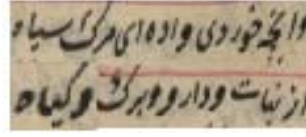 وانچه خوردی و داده‌ای مرگ سیاه
از نبات و دارو و برگ و گیاه